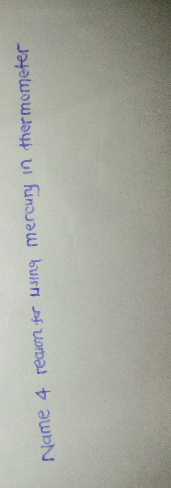 Name 4 reason for using mercury in thermometer